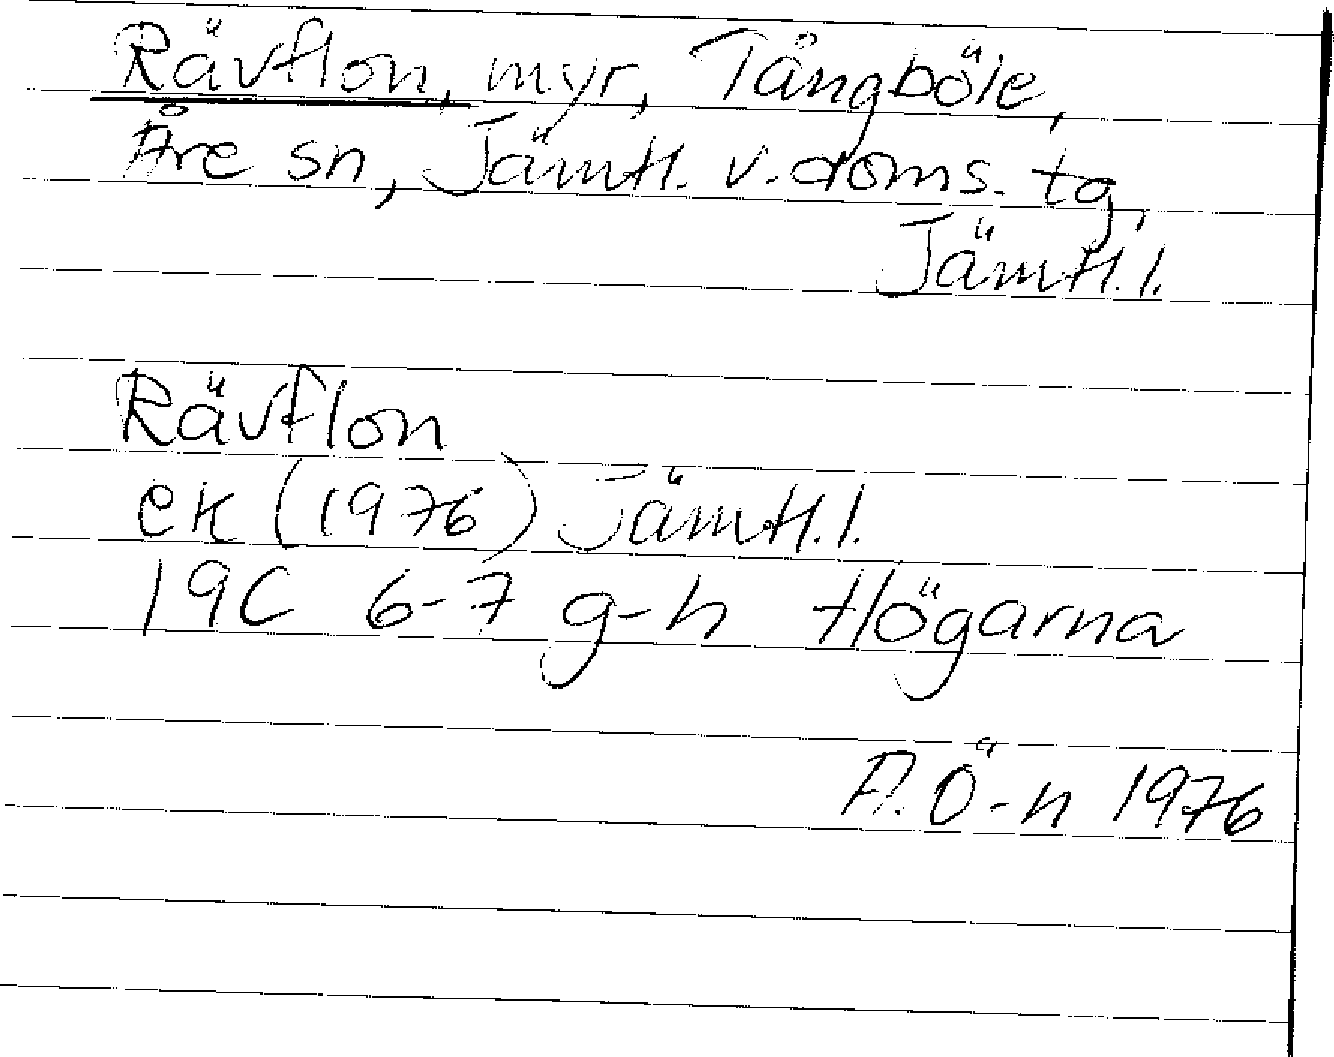 Rävflon, myr, Tångböle,
Åre sn, Jämtl. v. doms. tg,
Jämtl. l.
Rävflon
ek (1976) Jämtl. l.
19C 6-7 g-h Högarna
A. Ö-n 1976